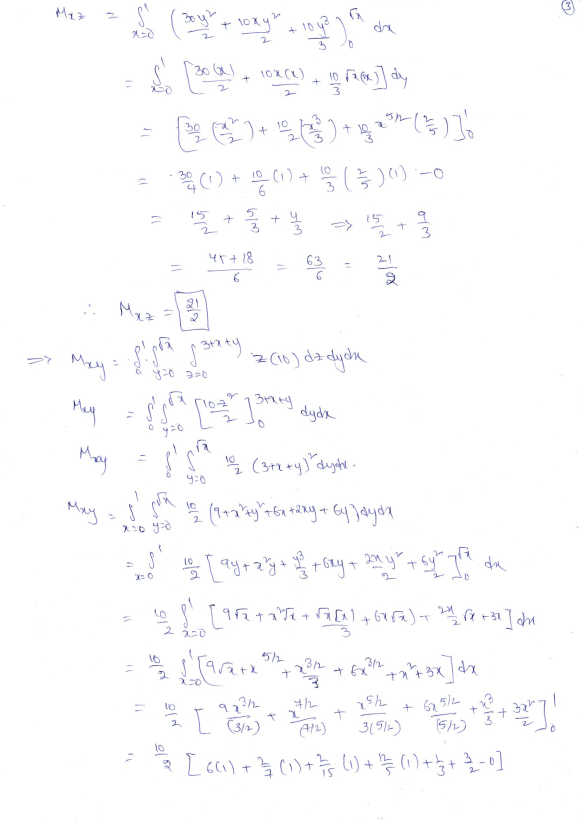 ③
Mxz = ∫_{x=0}^{1} (30y²/2 + 10xy²/2 + 10y³/3)_0^{√x} dx
= ∫_{x=0}^{1} [30(x)/2 + 10x(x)/2 + 10/3 √x(x)] dy
= [30/2 (x²/2) + 10/2 (x³/3) + 10/3 x^{5/2} (2/5)]_0^1
= 30/4 (1) + 10/6 (1) + 10/3 (2/5)(1) - 0
= 15/2 + 5/3 + 4/3 ⇒ 15/2 + 9/3
= 45+18/6 = 63/6 = 21/2
∴ Mxz = 21/2
⇒ Mxy = ∫_0^1 ∫_{y=0}^{√x} ∫_{z=0}^{3+x+y} z(10) dz dy dx
Mxy = ∫_0^1 ∫_{y=0}^{√x} [10z²/2]_0^{3+x+y} dy dx
Mxy = ∫_0^1 ∫_{y=0}^{√x} 10/2 (3+x+y)² dy dx.
Mxy = ∫_{x=0}^{1} ∫_{y=0}^{√x} 10/2 (9+x²+y²+6x+2xy+6y) dy dx
= ∫_{x=0}^{1} 10/2 [9y+x²y+y³/3+6xy+2xy²/2+6y²/2]_0^{√x} dx
= 10/2 ∫_{x=0}^{1} [9√x+x²√x+√x[x]/3+6x√x)+2x/2 √x+3x] dx
= 10/2 ∫_{x=0}^{1} [9√x+x^{5/2}+x^{3/2}/3+6x^{3/2}+x²+3x] dx
= 10/2 [9x^{3/2}/(3/2)+x^{7/2}/(7/2)+x^{5/2}/3(5/2)+6x^{5/2}/(5/2)+x³/3+3x²/2]_0^1
= 10/2 [6(1)+2/7(1)+2/15(1)+12/5(1)+1/3+3/2-0]